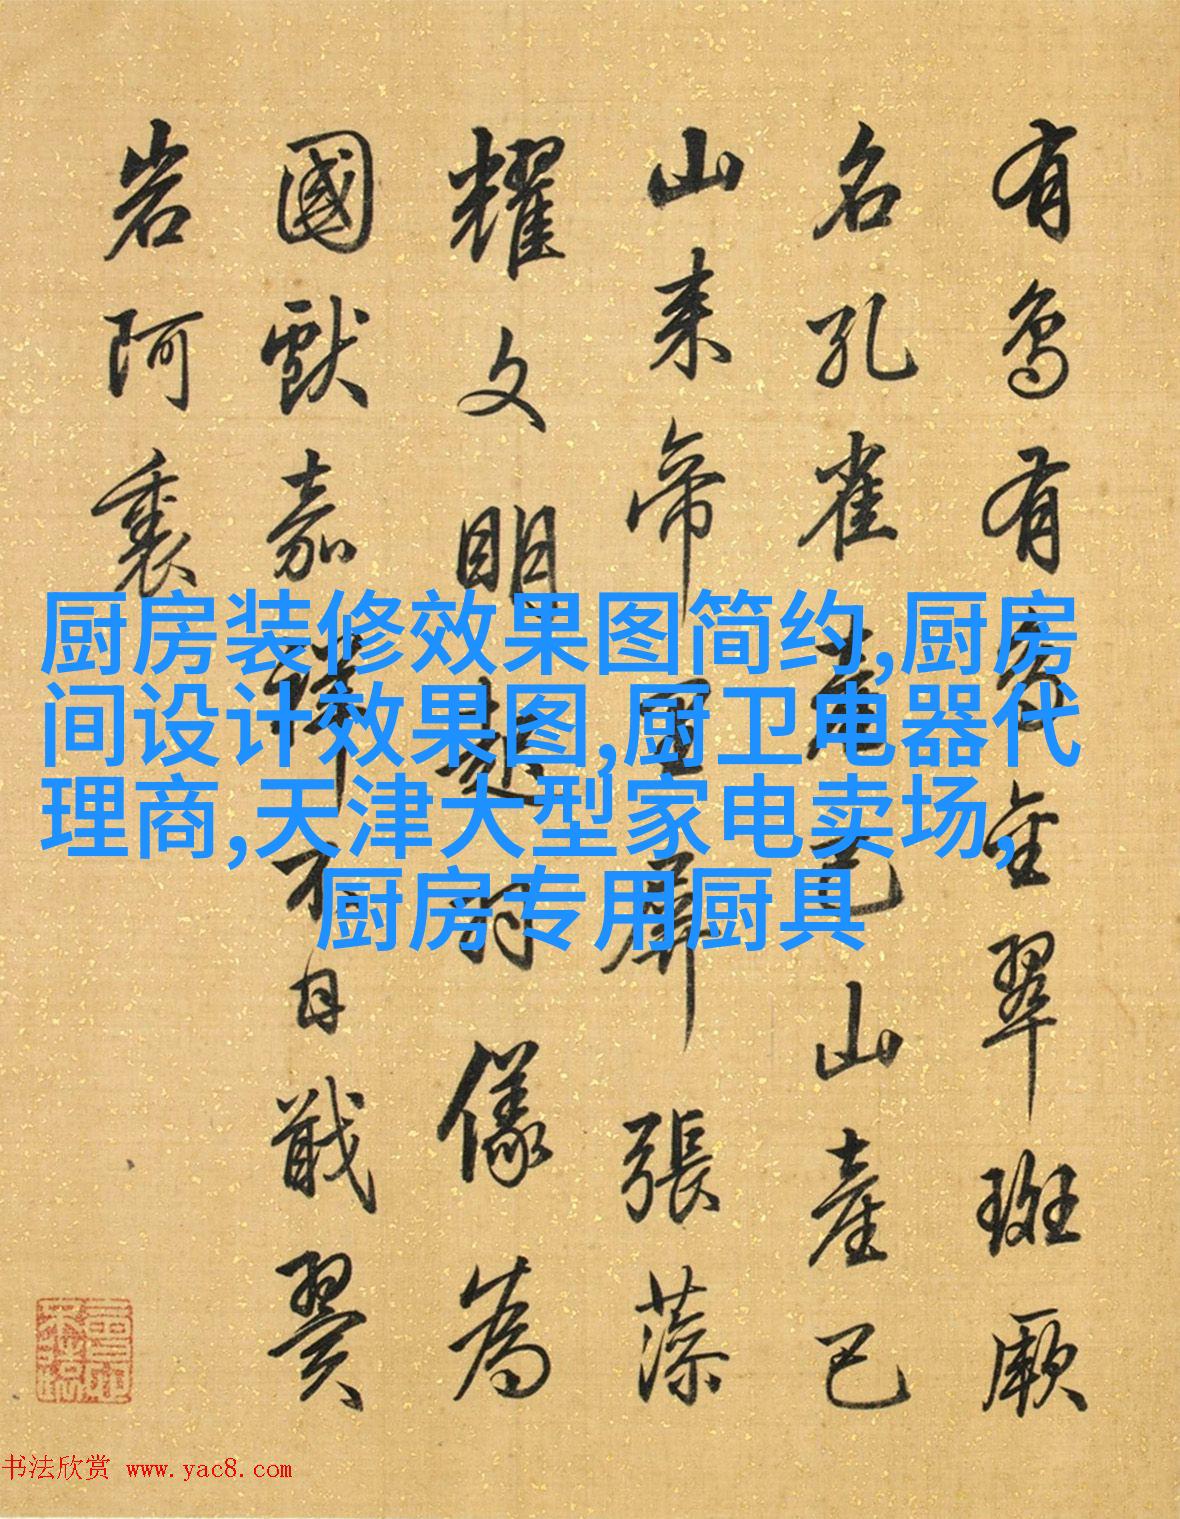 有鳥有金翠斑厥
名孔雀巴山產巴
山来帝張藻
耀文明羽儀為
國獻嘉不日戢翼
岩阿裏
厨房装修效果图简约,厨房
间设计效果图,厨卫电器代
理商,天津大型家电卖场,
厨房专用厨具
书法欣赏 www.yac8.com